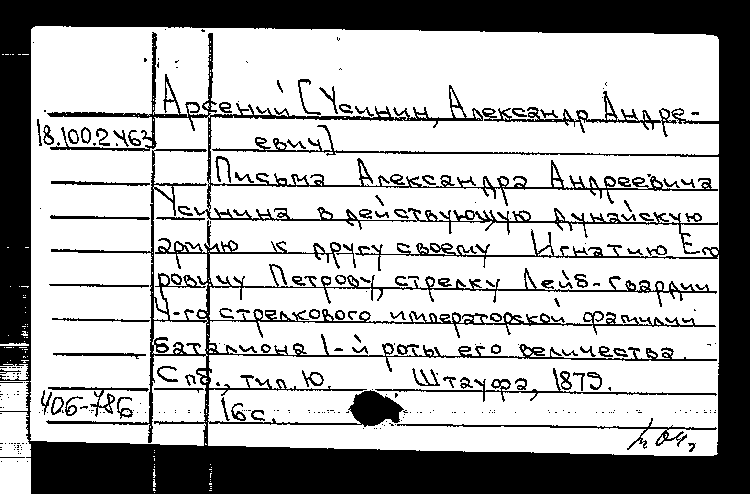 Арсений [Усинин, Александр Андре-
18.100.2.463 евич]
Письма Александра Андреевича
Усинина в действующую дунайскую
армию к другу своему Игнатию Его
ровичу Петрову, стрелку Лейб-гвардии
4-го стрелкового императорской фамилии
баталиона 1-й роты его величества.
Спб., тип. Ю. Штауфа, 1879.
40.6-786 16 с.